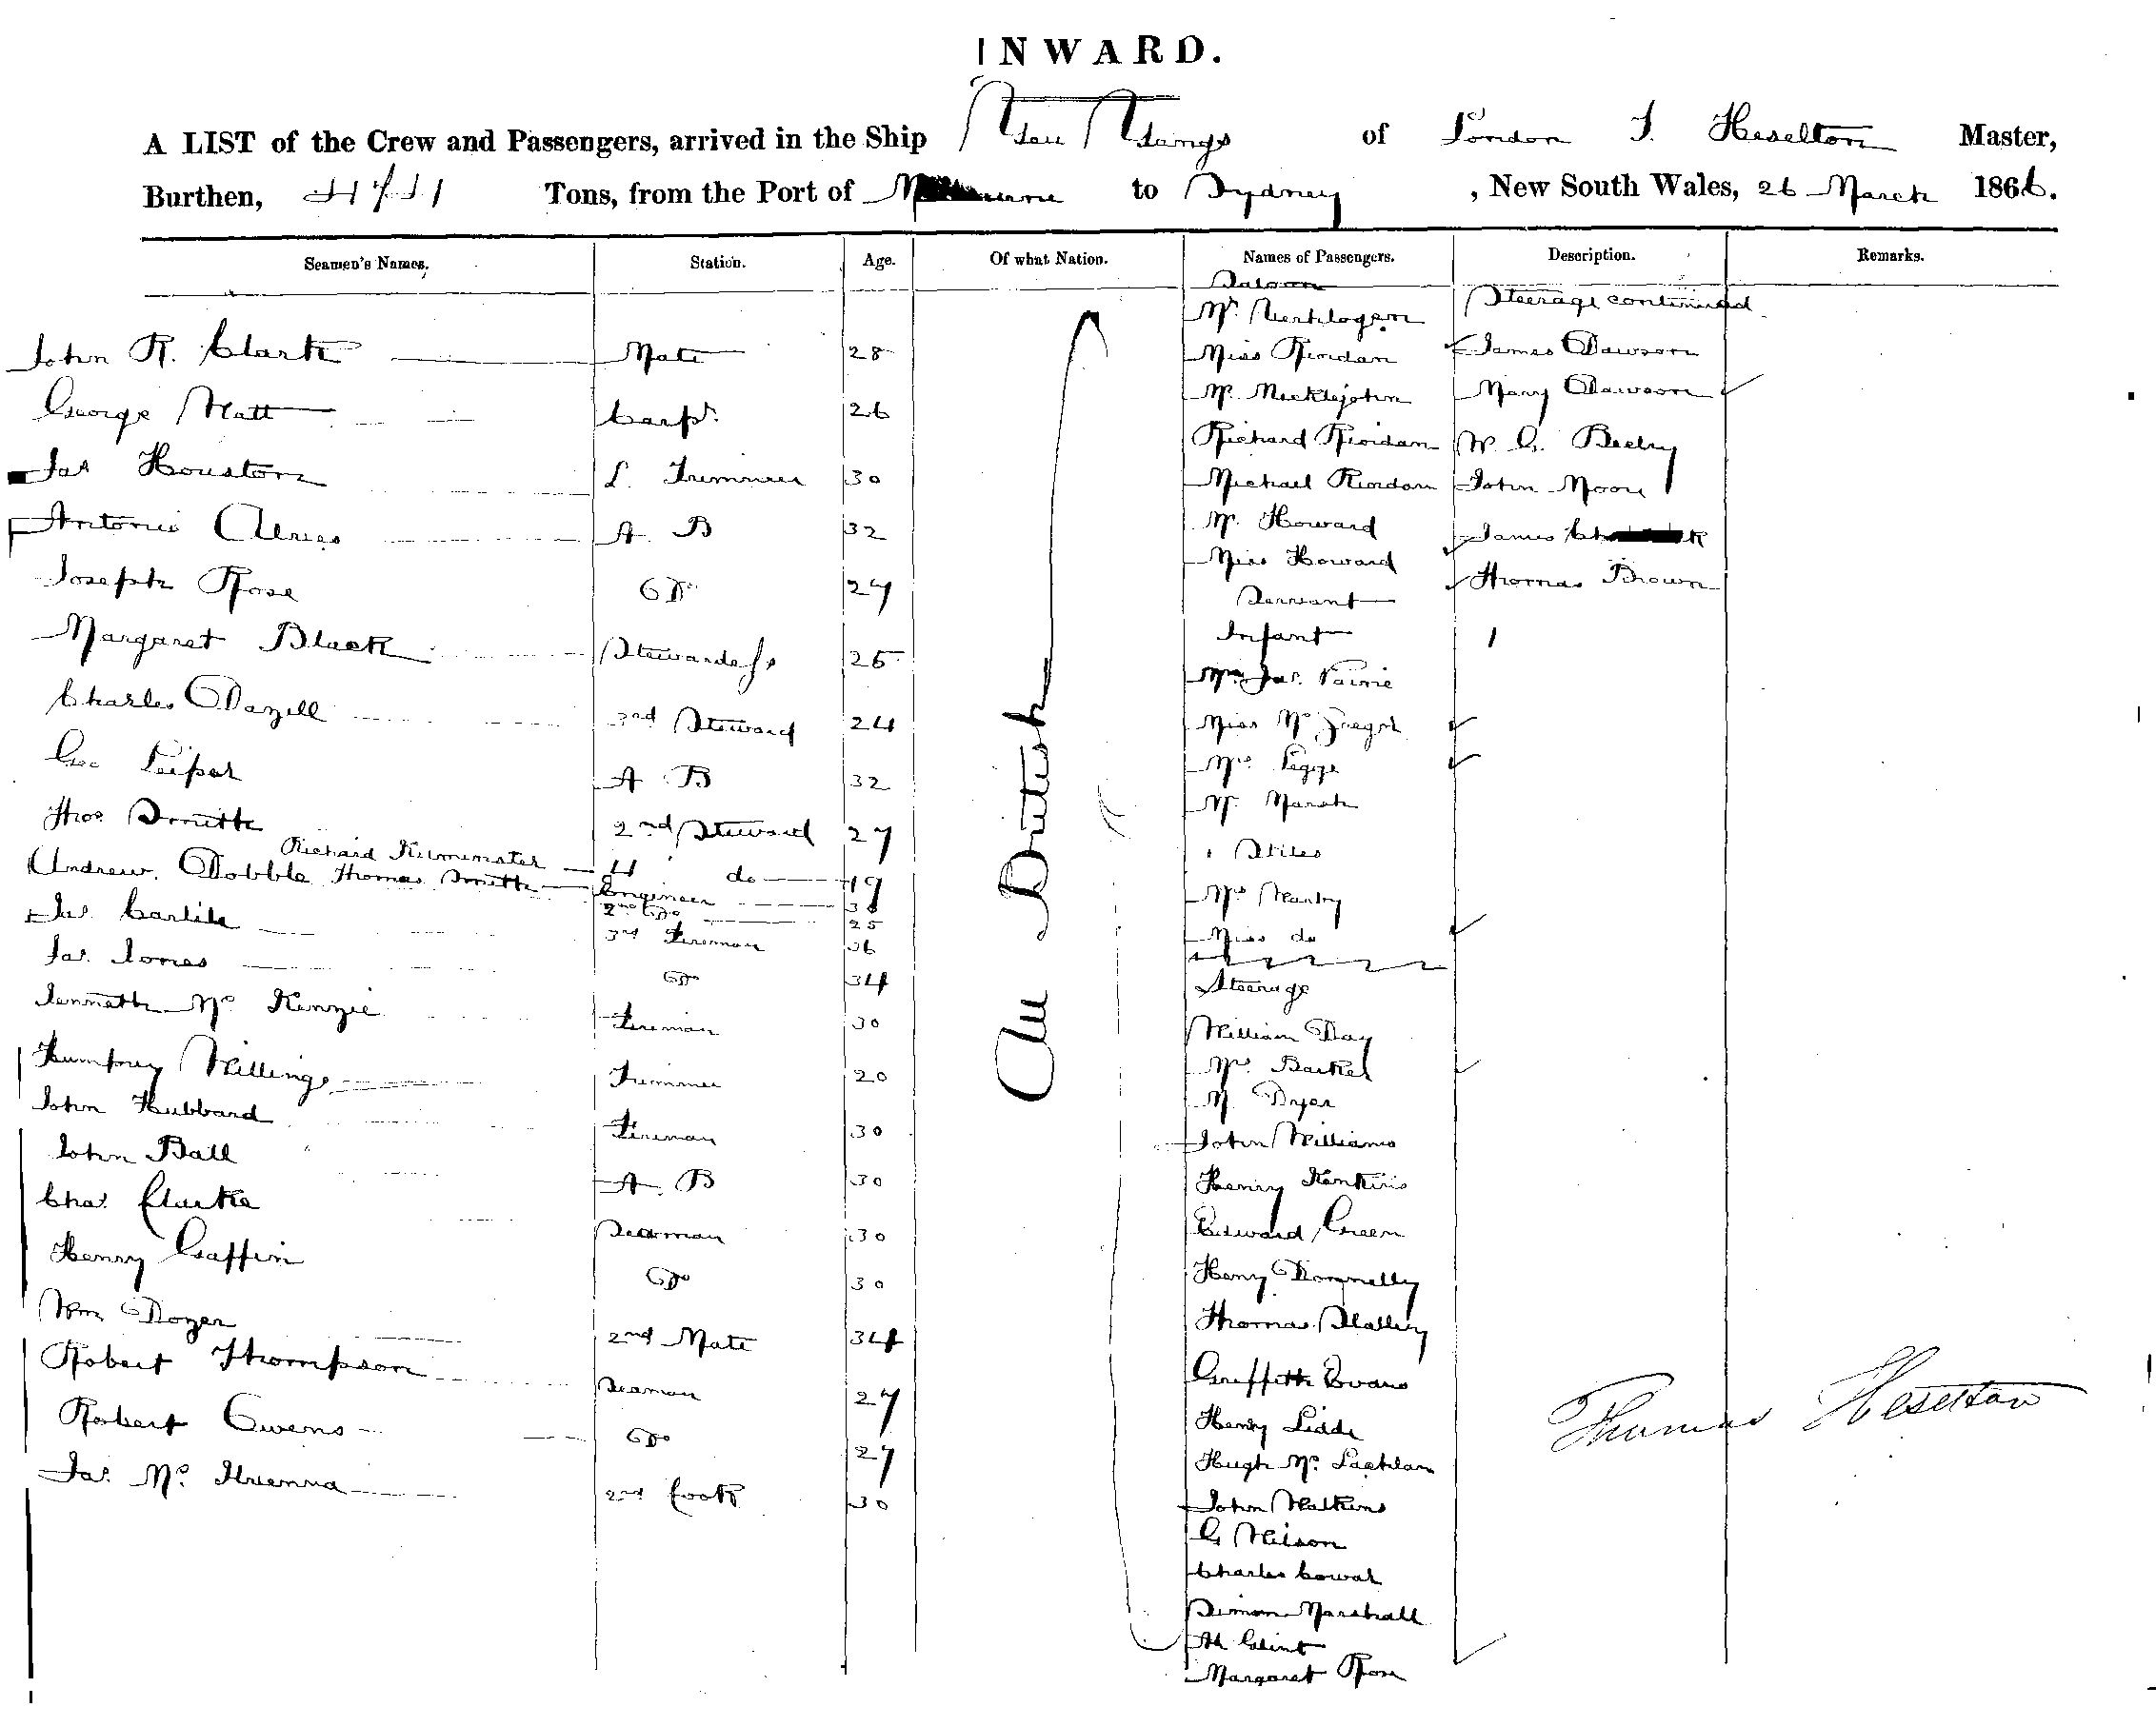 INWARD.
A LIST of the Crew and Passengers, arrived in the Ship of London T. Heselton Master,
Burthen, Tons, from the Port of to Sydney, New South Wales, 26 March 1866.
Seamen's Names. Station. Age. Of what Nation. Names of Passengers. Description. Remarks.
John R. Clark Mate 28
George Watt Carpr. 26
Jas Houston L. Trimmer 30
Antonio A B 32
Joseph Rose Do 27
Margaret Black Stewardess 25
Charles Dazell 3rd Steward 24
Geo Leiper A B 32
Thos. Smith 2nd Steward 27
Richard Kilminster 4 do 19
Andrew Dobble Thomas Smith Engineer
2nd Do 25
Jas. Carlile 3rd Fireman 36
Jas. Jones Do 34
Kenneth Mc Kenzie Fireman 30
Humfrey Willings Trimmer 20
John Hubbard Fireman 30
John Ball A. B 30
Chas. Clarke Seaman 30
Henry Gaffin Do 30
Wm Dozer 2nd Mate 34
Robert Thompson Seaman 27
Robert Owens Do 27
Jas. Mc 2nd Cook 30
All British
Saloon
Mr.
Miss Riordan
Mr. Mecklejohn
Richard Riordan
Michael Riordan
Mr. Howard
Miss Howard
Servant
Infant 1
Jas. Pairie
Miss McGregor
Mrs Legge
Mr. Marsh
" Stiles
Mrs Manby
Miss do
Steerage
William Day
Mrs. Barker
Mr Dyer
John Williams
Henry Jenkins
Edward Green
Henry Donnelly
Thomas Slattery
Griffith Evans
Henry Lidde
Hugh Mc Lachlan
John Watkins
G Wilson
Charles Cowar
Simon Marshall
Clint
Margaret Rose
Steerage continued
James Dawson
Mary Dawson
W. G. Beeby
John Moore
James
Thomas Brown
Thomas Heselton